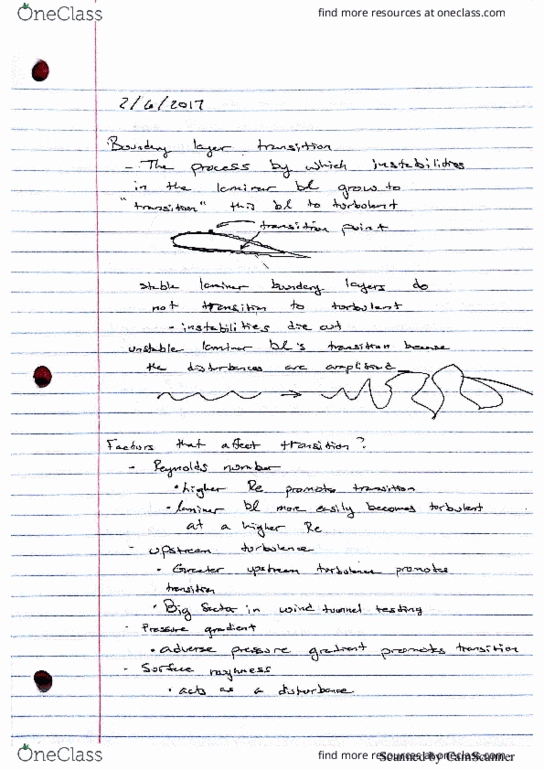 OneClass
find more resources at oneclass.com
2/6/2017
Boundary layer transition
- The process by which instabilities
in the laminar bl grow to
"transition" this bl to turbulent
transition point
stable laminar boundary layers do
not transition to turbulent
- instabilities die out
unstable laminar bl's transition because
the disturbances are amplified
Factors that affect transition?
- Reynolds number
• higher Re promote transition
• laminar bl more easily becomes turbulent
at a higher Re
- upstream turbulence
• Greater upstream turbulence promotes
transition
• Big factor in wind tunnel testing
- Pressure gradient
• adverse pressure gradient promotes transition
- Surface roughness
• acts as a disturbance
OneClass
find more resources at oneclass.com
Scanned by CamScanner